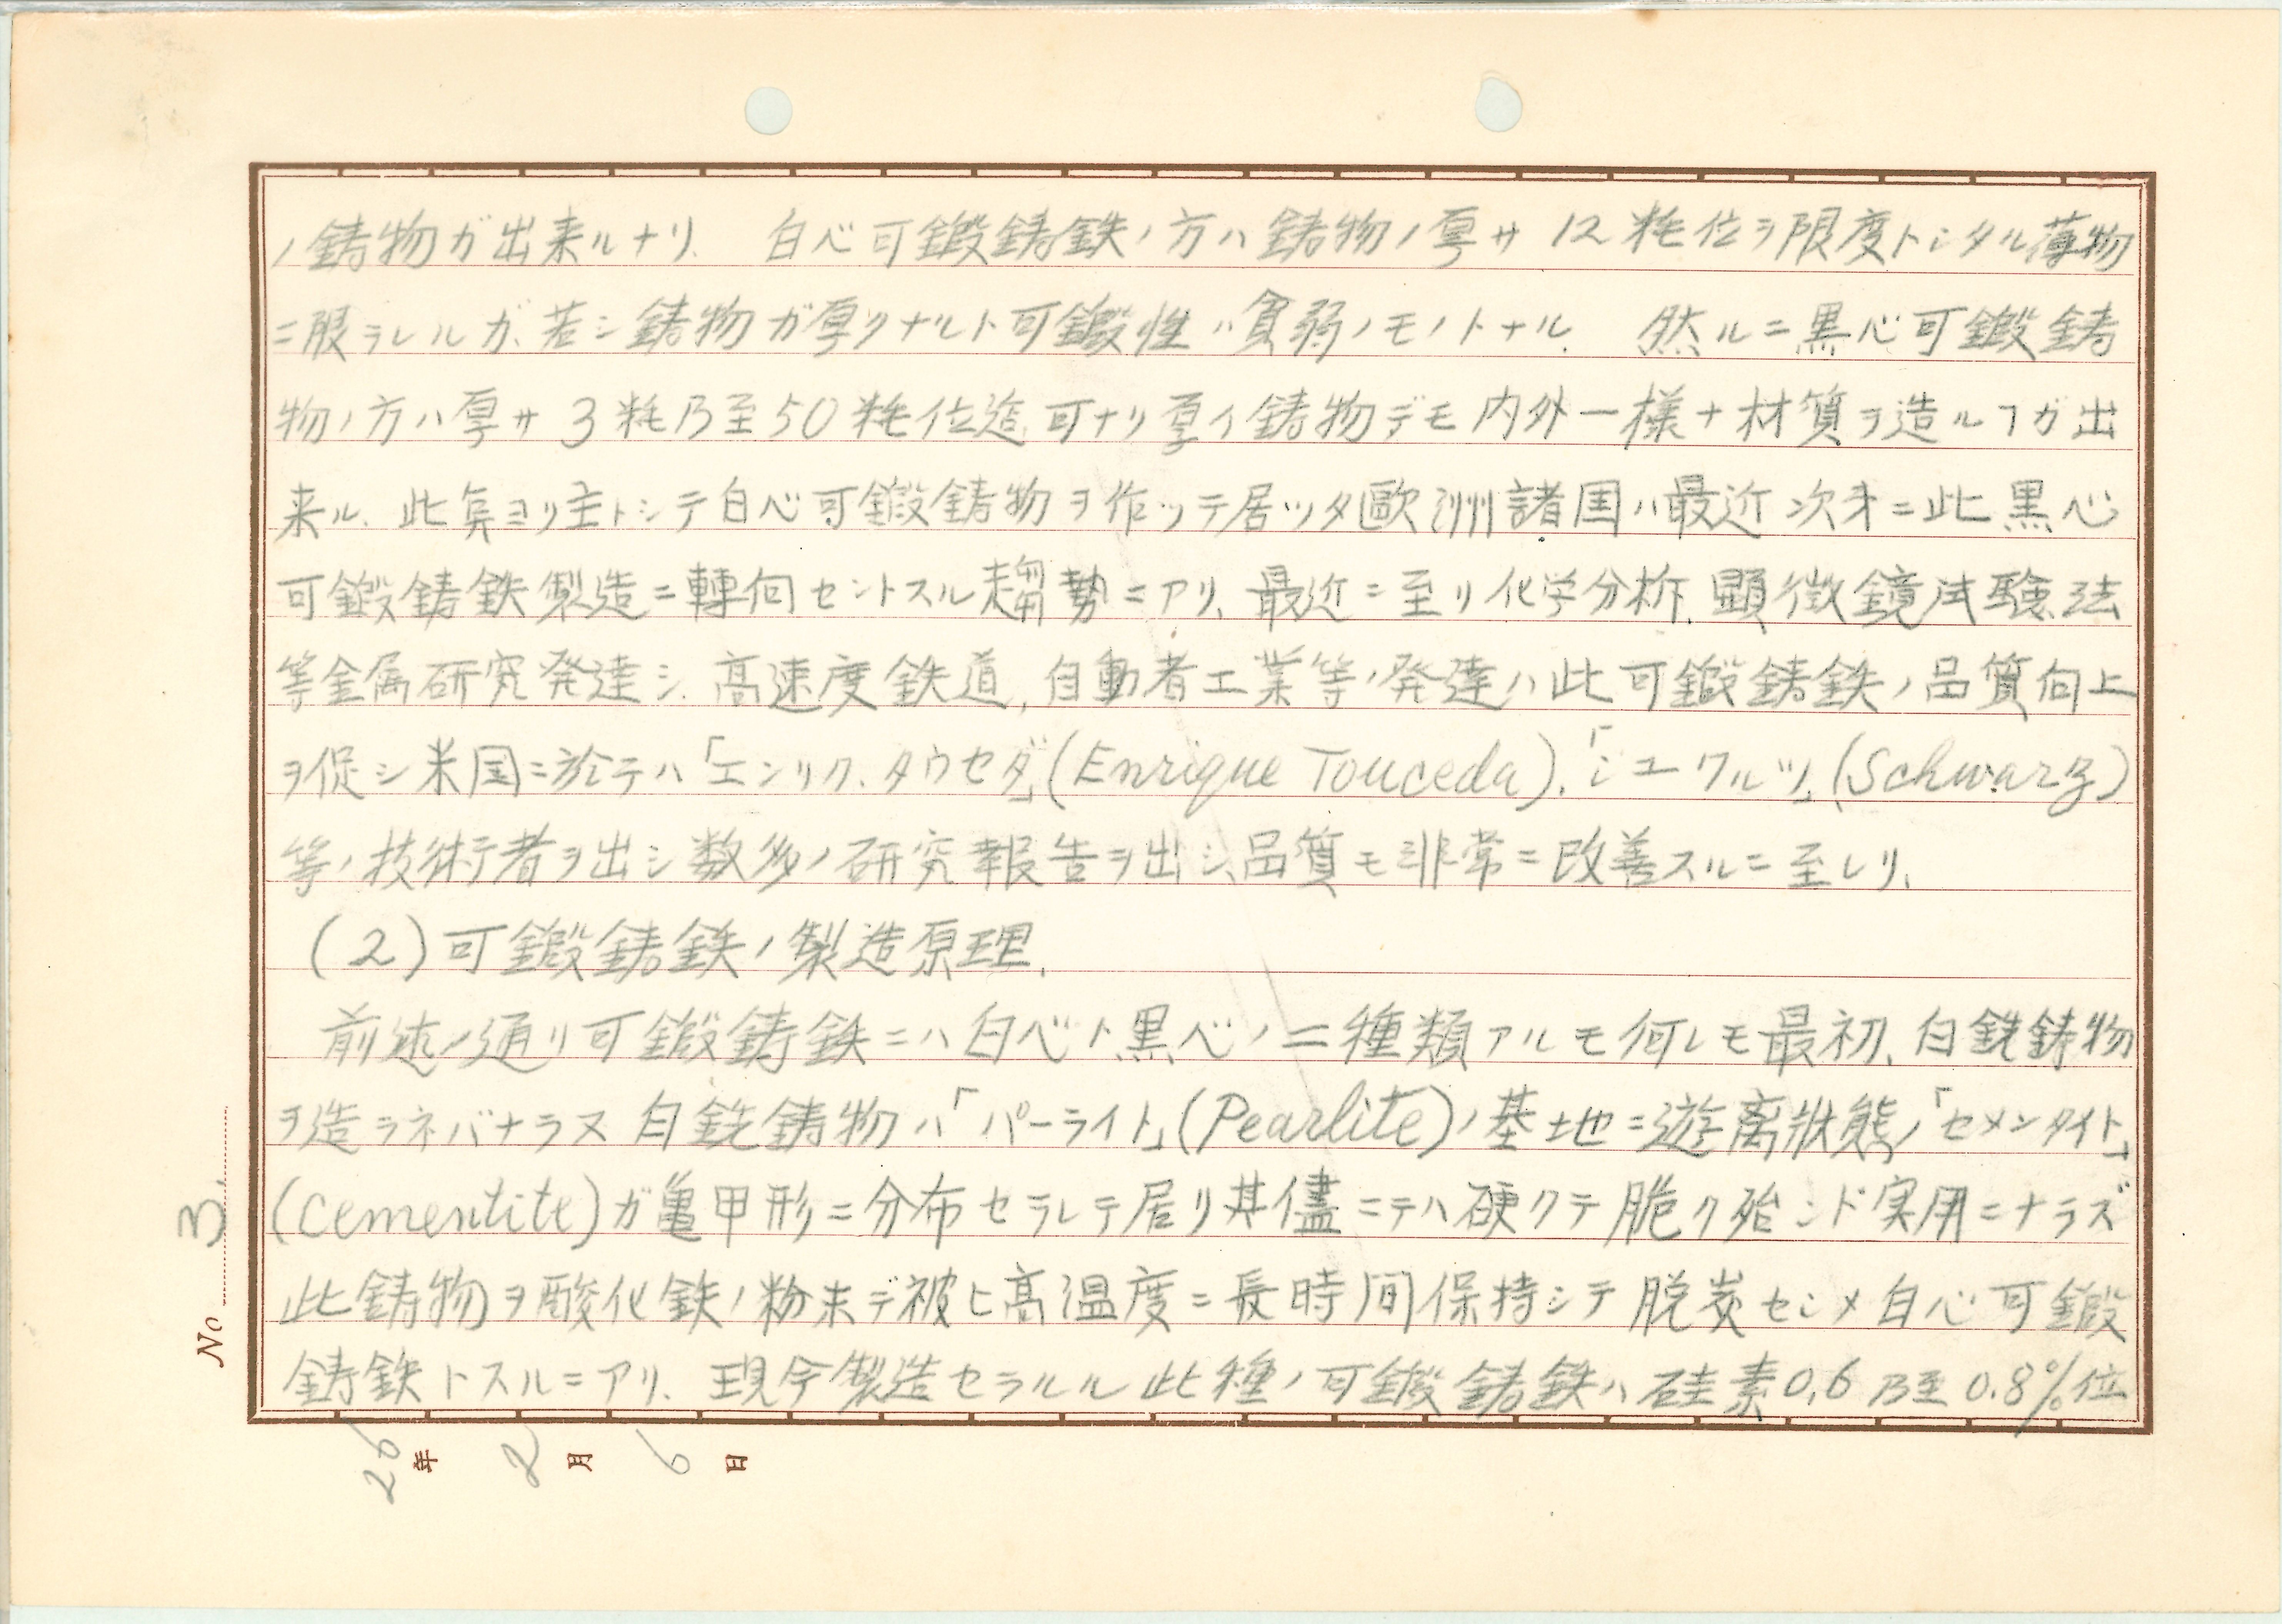 ノ鋳物ガ出来ルナリ、 白心可鍛鋳鉄ノ方ハ鋳物ノ厚サ 12 粍位ヲ限度トシタル薄物
ニ限ラレルガ、若シ鋳物ガ厚クナルト可鍛性ハ貧弱ノモノトナル、 然ルニ黒心可鍛鋳
物ノ方ハ厚サ 3 粍乃至 50 粍位迄可ナリ厚イ鋳物デモ内外一様ナ材質ヲ造ルヿガ出
来ル、此奌ヨリ主トシテ白心可鍛鋳物ヲ作ッテ居ッタ歐洲諸国ハ最近次才ニ此黒心
可鍛鋳鉄製造ニ轉向セントスル趨勢ニアリ、最近ニ至リ化学分析、顕微鏡試験法
等金属研究発達シ、高速度鉄道、自動者工業等ノ発達ハ此可鍛鋳鉄ノ品質向上
ヲ促シ米国ニ於テハ「エンリク、タウセダ」(Enrique Touceda)、「シユワルツ」(Schwarz)
等ノ技術者ヲ出シ数多ノ研究報告ヲ出シ、品質モ非常ニ改善スルニ至レリ、
(2) 可鍛鋳鉄ノ製造原理、
前述ノ通リ可鍛鋳鉄ニハ白心ト黒心ノ二種類アルモ何レモ最初、白銑鋳物
ヲ造ラネバナラヌ 白銑鋳物ハ「パーライト」(Pearlite)ノ基地ニ遊离状態ノ「セメンタイト」
(Cementite)ガ亀甲形ニ分布セラレテ居リ其儘ニテハ硬クテ脆ク殆ンド実用ニナラズ
此鋳物ヲ酸化鉄ノ粉末デ被ヒ高温度ニ長時間保持シテ脱炭セシメ白心可鍛
鋳鉄トスルニアリ、現今製造セラルル此種ノ可鍛鋳鉄ハ硅素0.6乃至0.8%位
No 3.
26年 2月 6日